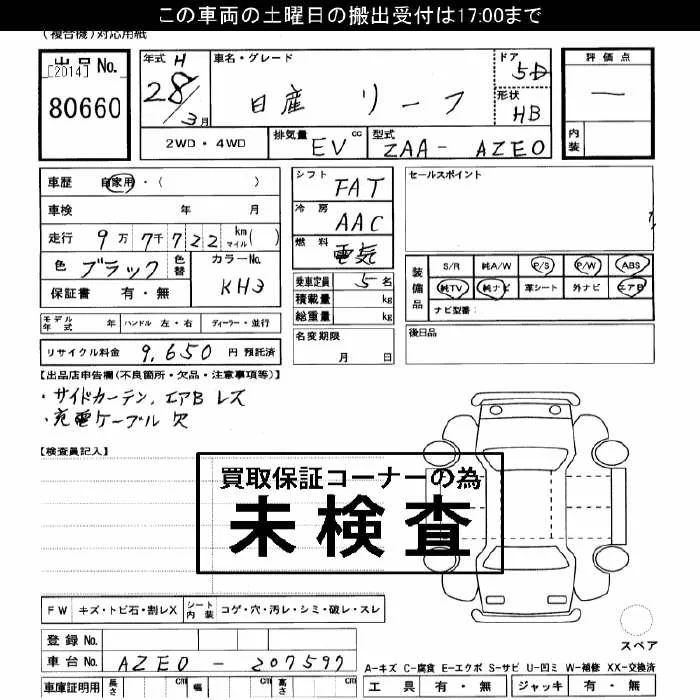 この車両の土曜日の搬出受付は17:00まで
(複合機)対応用紙
出品No.
[2014]
80660
年式 H 28/3月
車名・グレード
日産 リーフ
ドア 5D
形状 HB
評価点
—
内装
2WD・4WD
排気量 EV cc
型式 ZAA-AZE0
車歴 自家用・( )
車検 年 月
走行 9万7千722 km マイル( )
色 ブラック 色替
カラーNo. KH3
保証書 有・無
シフト FAT
冷房 AAC
燃料 電気
乗車定員 5名
積載量 kg
総重量 kg
セールスポイント
装備品
S/R 純A/W P/S P/W ABS
純TV 純ナビ 革シート 外ナビ エアB
ナビ型番:
モデル年式 年 ハンドル 左・右 ディーラー・並行
名変期限
月 日
後日品
リサイクル料金 9,650 円 預託済
【出品店申告欄(不良箇所・欠品・注意事項等)】
・サイドカーテン,エアB レス
・充電ケーブル 欠
【検査員記入】
買取保証コーナーの為
未検査
FW キズ・トビ石・割レX シート内装 コゲ・穴・汚レ・シミ・破レ・スレ
スペア
登録No.
車台No. AZE0-207597
A-キズ C-腐食 E-エクボ S-サビ U-凹ミ W-補修 XX-交換済
車庫証明用 長さ cm 幅 cm 高さ cm
工具 有・無 ジャッキ 有・無